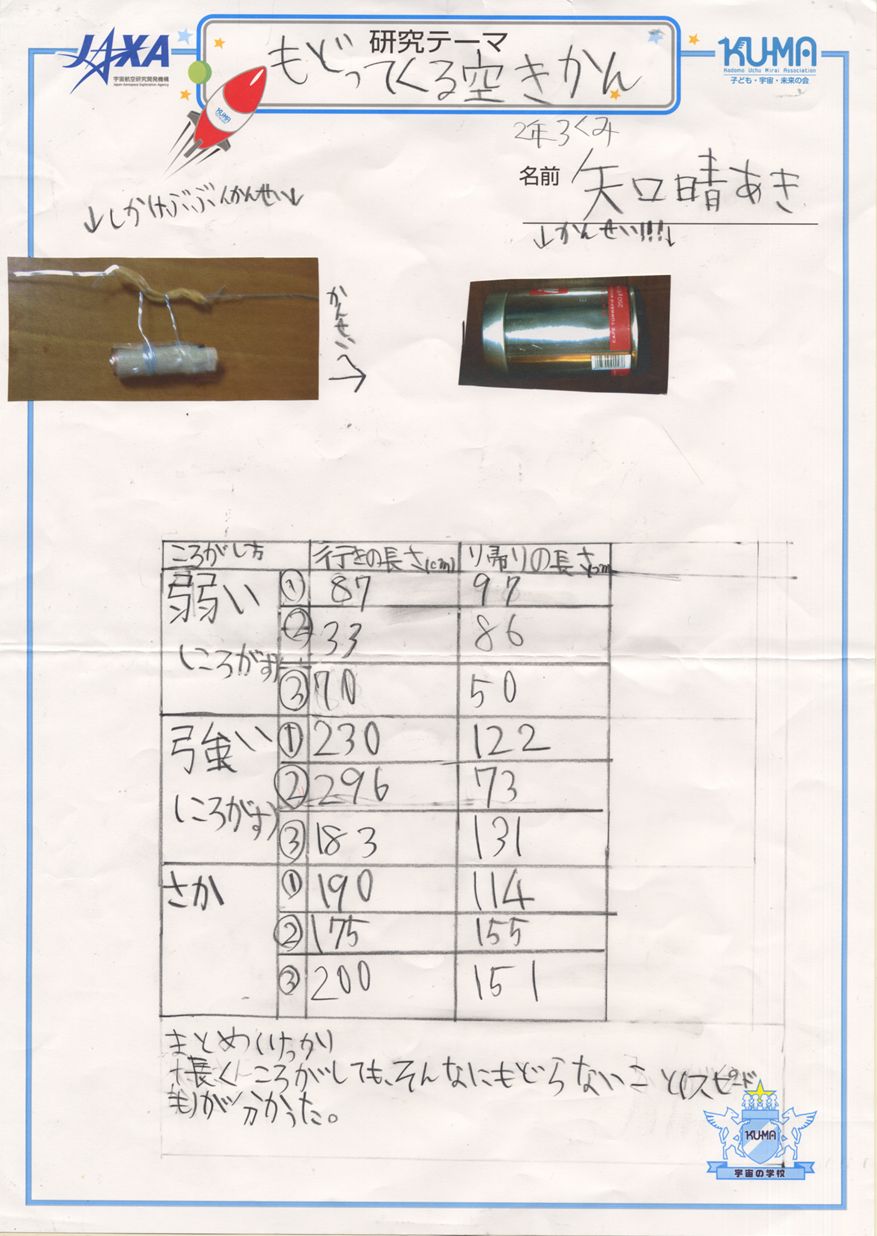 JAXA
宇宙航空研究開発機構
Japan Aerospace Exploration Agency
研究テーマ
もどってくる空きかん
KU-MA
Kodomo Uchu Mirai Association
子ども・宇宙・未来の会
KU-MA
2年3くみ
名前 矢口晴あき
↓しかけぶぶんかんせい↓
↓かんせい!!!↓
かんせいへ
→
ころがし方 行きの長さ(cm) り帰りの長さ(cm
弱い ① 87 97
(ころがす) ② 33 86
③ 70 50
強い ① 230 122
(ころがす) ② 296 73
③ 183 131
さか ① 190 114
② 175 155
③ 200 151
まとめ(けっか)
長くころがしても、そんなにもどらないこと(スピード
も)が分かった。
KU-MA
宇宙の学校